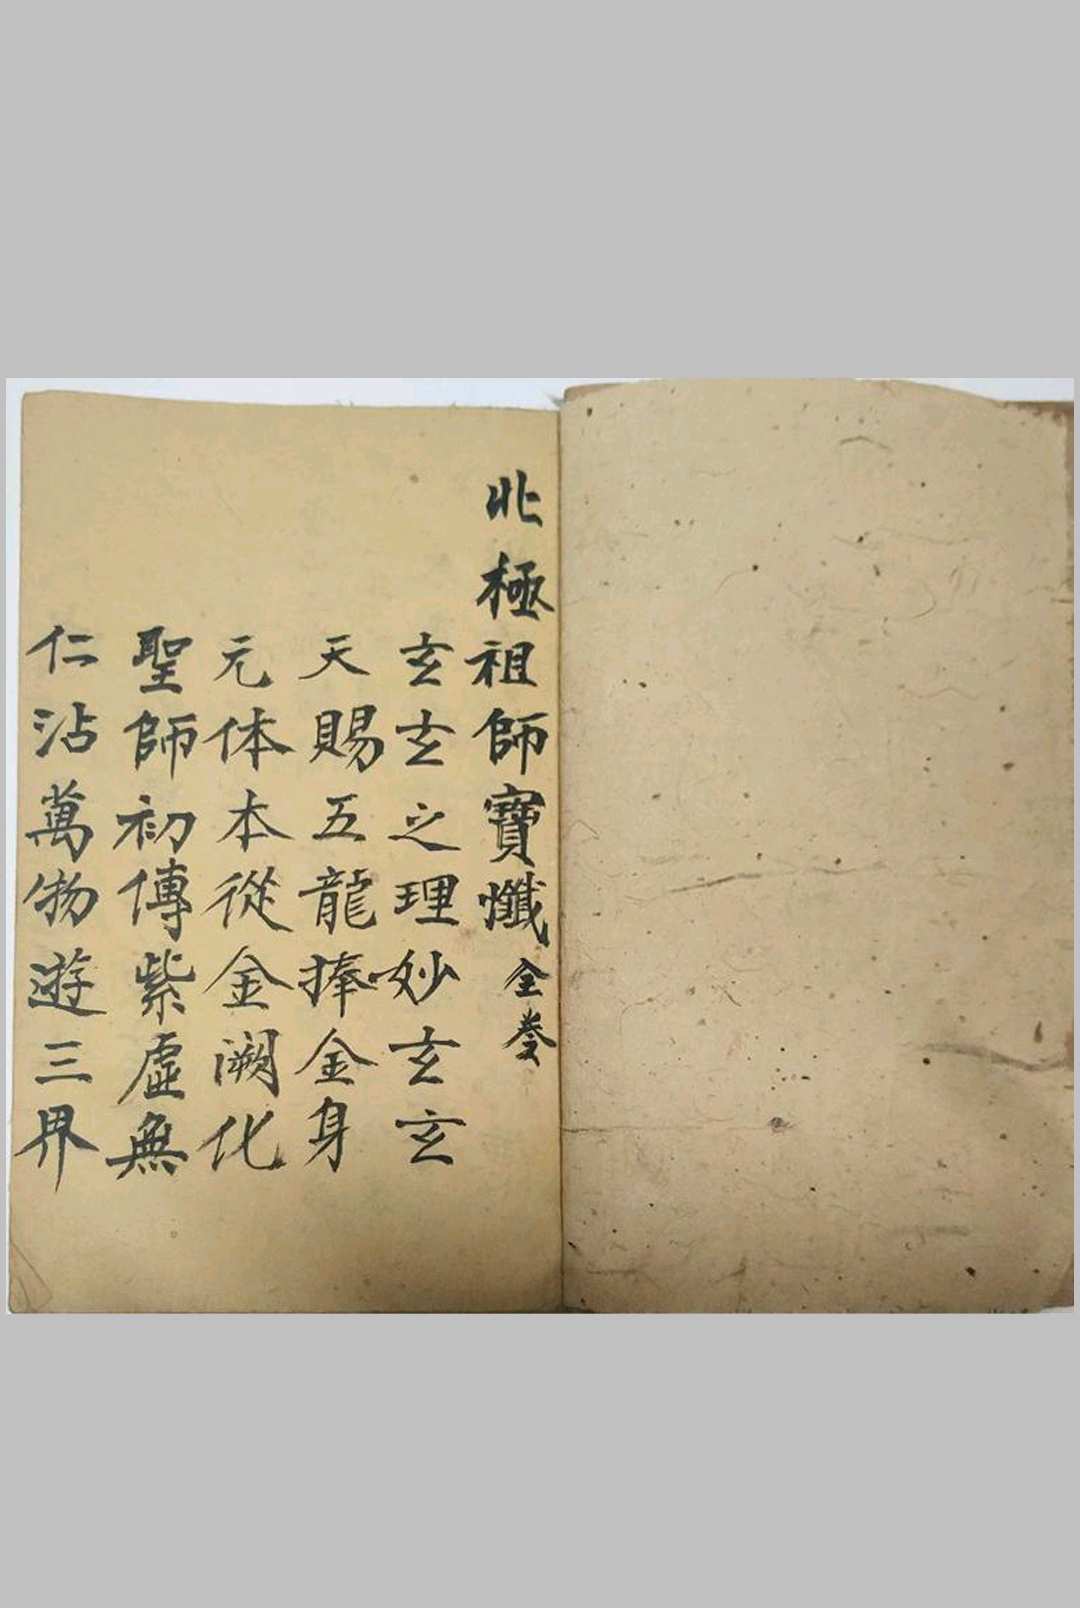 北極祖師寶懺全卷
玄玄之理妙玄玄
天賜五龍捧金身
元体本從金闕化
聖師初傳紫虛無
仁沾萬物遊三界